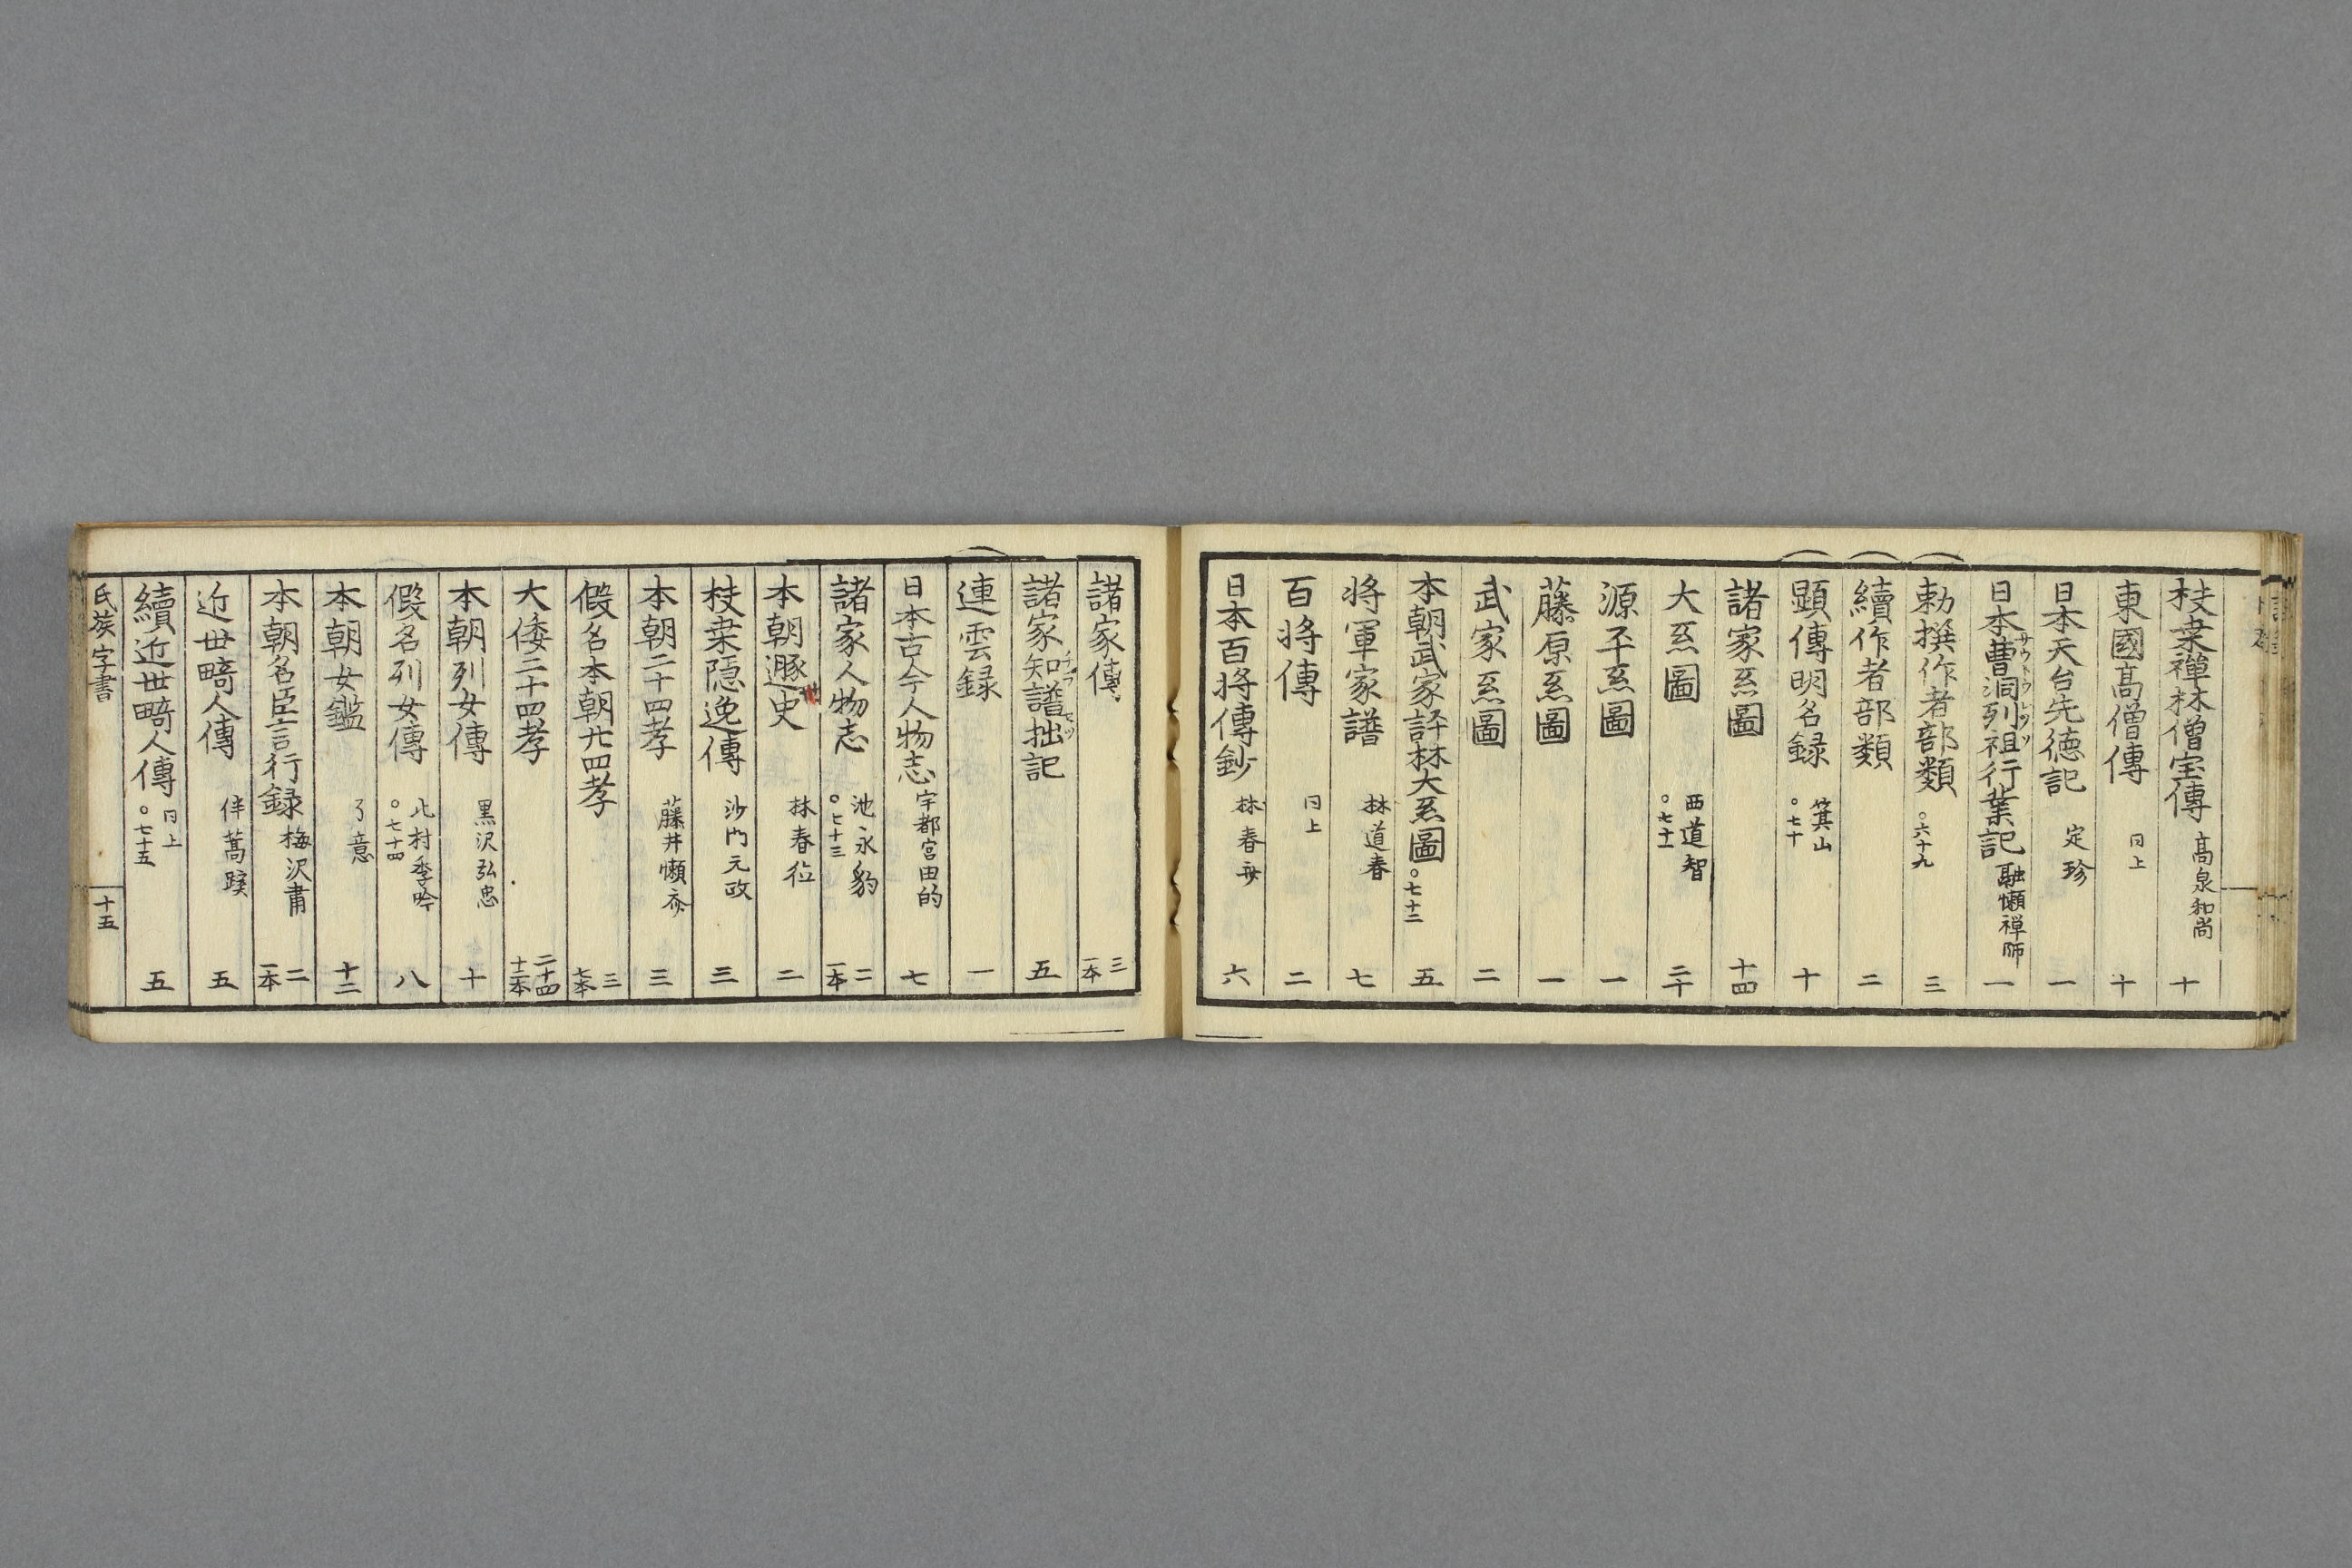 扶桒禪林僧宝傳 高泉和尚 十
東國高僧傳 同上 十
日本天台先徳記 定珍 一
日本曹洞列祖行業記 融懶禅師 一
サウトウレツソ
勅撰作者部類 ○六十九 三
續作者部類 二
顕傳明名録 箕山 ○七十 十
諸家系圖 十四
大系圖 西道智 ○七十一 二十
源平系圖 一
藤原系圖 一
武家系圖 二
本朝武家評林大系圖 ○七十二 五
将軍家譜 林道春 七
百将傳 同上 二
日本百将傳鈔 林春斎 六
諸家傳 三 一本
諸家知譜拙記 五
チフ セツ
連雲録 一
日本古今人物志 宇都宮由的 七
諸家人物志 池永豹 ○七十三 二 一本
本朝遯史 林春徳 二
扶桒隠逸傳 沙門元政 三
本朝二十四孝 藤井懶斎 三
假名本朝廿四孝 三 七本
大倭二十四孝 二十四 十二本
本朝列女傳 黒沢弘忠 十
假名列女傳 北村季吟 ○七十四 八
本朝女鑑 了意 十二
本朝名臣言行録 梅沢肅 二 一本
近世畸人傳 伴蒿蹊 五
續近世畸人傳 同上 ○七十五 五
氏族字書 十五